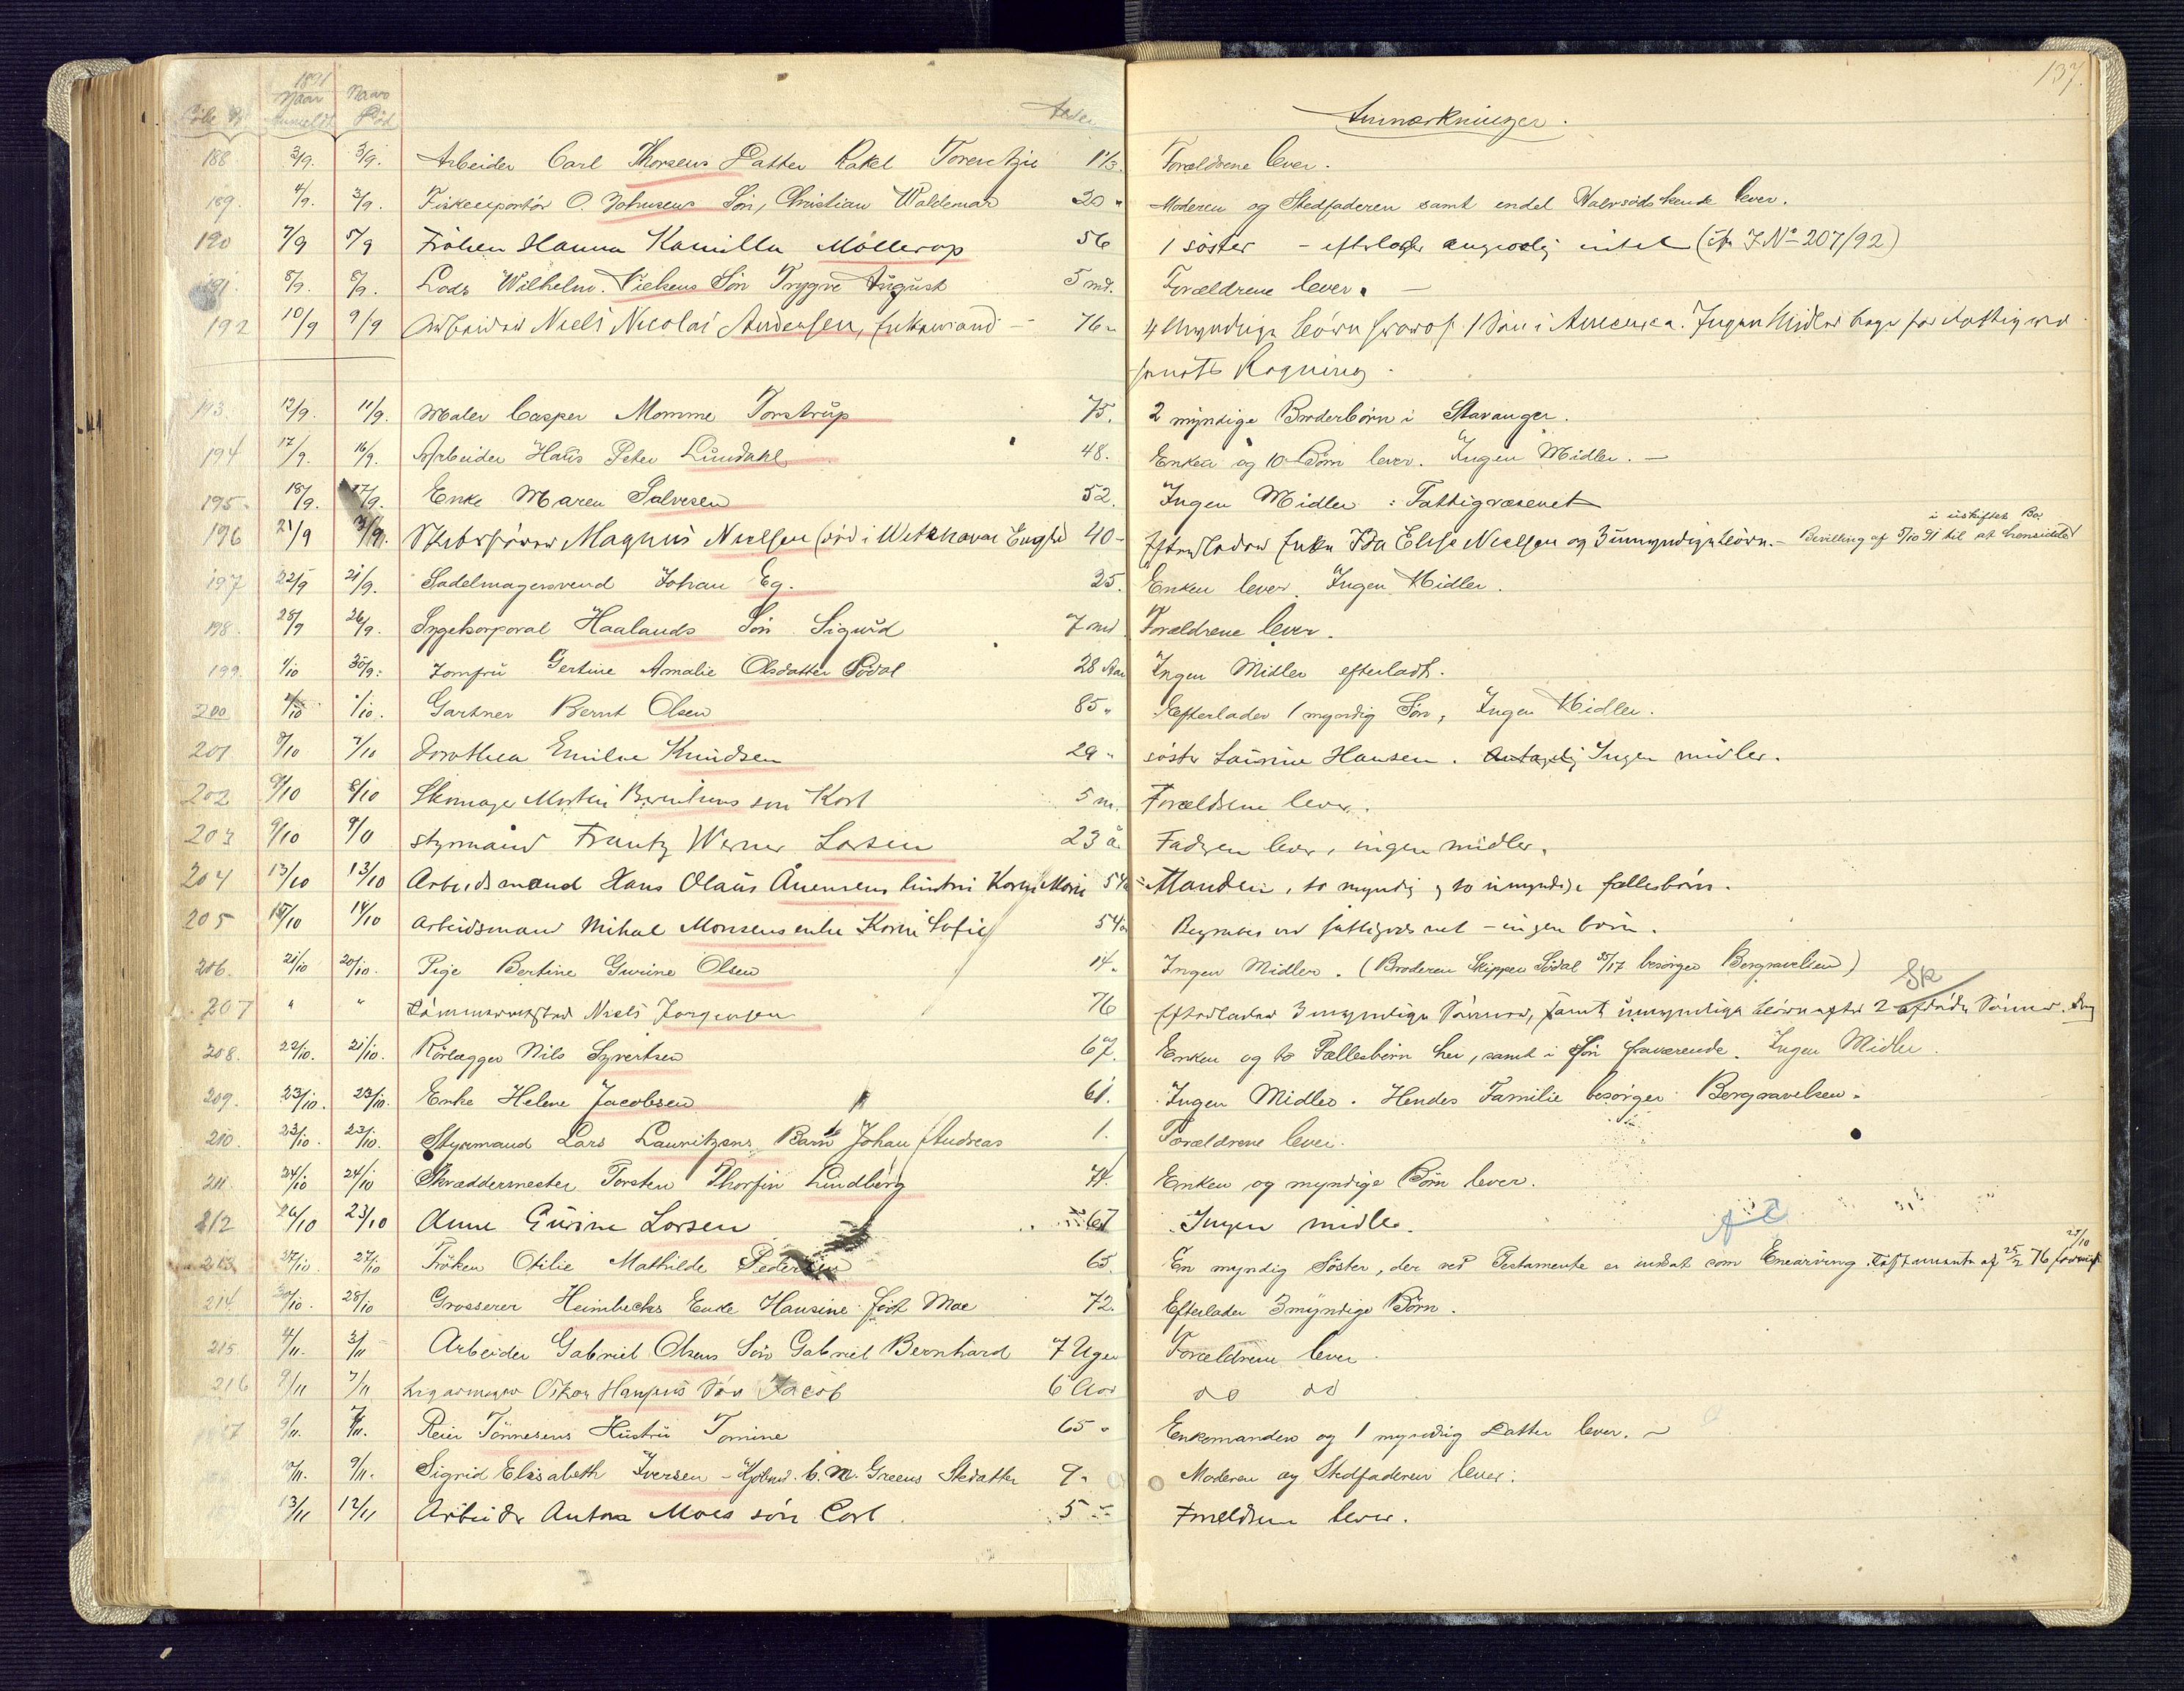 137.
1891
Naar Anmeldt
Naar Död
Alder
Anmærkninger.
188 3/9. 3/9. Arbeider Carl Thorsens Datter Rakel 1 1/3. Forældrene lever.
189. 4/9. 3/9. Fiskeexportör O. Johnsens Sön, Christian Waldemar 20 " Moderen og Stedfaderen samt endel Halvsödskende lever.
190 7/9 5/9 Fröken Hanna Kamilla Möllerop 56 1 söster - efterlader angivelig intet (cfr J.No 207/92)
191. 8/9. 8/9. Lods Wilhelm Nielsens Sön Trygve August 5 md. Forældrene lever. —
192 10/9 9/9 Arbeider Niels Nicolai Andersen, Enkemand — 76 " 4 Umyndige Börn hvoraf 1 Sön i America. Ingen Midler
Regning.
193. 12/9. 11/9. Maler Casper Momme Torstrup 75. 2 myndige Broderbörn i Stavanger.
194 17/9. 16/9. Arbeider Hans Peter Lundahl 48. Enken og 10 Börn lever. Ingen Midler. —
195. 18/9. 17/9. Enke Maren Salvesen 52. Ingen Midler : Fattigvæsenet
i uskiftet Bo.
196 21/9 3/9. Skibsförer Magnus Nielsen (död i Westhaven Engld 40 - Efterlader Enke Ida Elise Nielsen og 3 umyndige börn. — Bevilling af 5/10 91 til at hensidde
197 22/9 21/9. Sadelmagersvend Johan Eg. 25. Enken lever. Ingen Midler.
198. 28/9 26/9. Haalands Sön Sigurd 7 md. Forældrene lever.
199. 1/10 30/9. Jomfru Gertine Amalie Olsdatter Södal 28 Aar Ingen Midler efterladt.
200 2/10 1/10. Gartner Bernt Olsen 85 " Efterlader 1 myndig Sön, Ingen Midler.
201 8/10 7/10 Dorothea Emilie Knudsen 29 " söster Laurine Hansen. Antagelig Ingen midler.
202 9/10 8/10 Skomager Martin Berntsens sön Karl 5 m. Forældrene lever.
203 9/10 9/10 Styrmand Frantz Werner Larsen 23 å. Faderen lever, ingen midler.
204 13/10 13/10 Arbeidsmand Hans Olaus Ånensens hustru Karen Marie 54 Manden, to myndig og to umyndige fællesbörn.
205 15/10 14/10 Arbeidsmand Mikal Monsens enke Karen Sofie 54 Begraves ved fattigvæsenet - ingen börn.
206. 21/10 20/10. Pige Bertine Gurine Olsen 14. Ingen Midler. (Broderen Skipper Södal 35/17 besörger Bergravelsen)
Sk
207 " " Tömmermester Niels Jörgensen 76 Efterlader 3 myndige Sönner, samt umyndige börn efter 2 afdöde Sönner.
208. 22/10. 21/10. Rörlægger Nils Syvertsen 67. Enken og to Fællesbörn her, samt i Sön fraværende. Ingen Midler.
209. 23/10. 23/10. Enke Helene Jacobsen 61. Ingen Midler. Hendes Familie besörger Bergravelsen.
210. 23/10. 23/10. Styrmand Lars Lauritzens Barn Johan Andreas 1. Forældrene lever.
211. 24/10 24/10 Skræddermester Torsten Thorfin Lindberg 74. Enken og myndige Börn lever.
212 26/10 23/10 Anne Gurine Larsen 67 Ingen midler.
213 27/10. 27/10 Fröken Otilie Mathilde Pedersen 65. En myndig Söster, der ved Testamente er indsat som Enearving. Testamente af 25/2 76
214. 30/10. 28/10 Grosserer Heimbecks Enke Hansine född Moe 72. Efterlader 3 myndige Börn.
215. 4/11. 3/11 Arbeider Gabriel Olsens Sön Gabriel Bernhard 7 Uger Forældrene lever.
216 9/11 7/11 Oskar Hansens Sön Jacob 6 Aar do do
217 9/11. 7/11. Reier Tönnesens Hustru Tomine 65 " Enkemanden og 1 myndig Datter lever. ~
9/11. Sigrid Elisabeth Iversen - C. M. Greens Stedatter 9 " Moderen og Stedfaderen lever.
13/11 12/11 Arbeider Antons Moes sön Carl 5 " Forældrene lever.